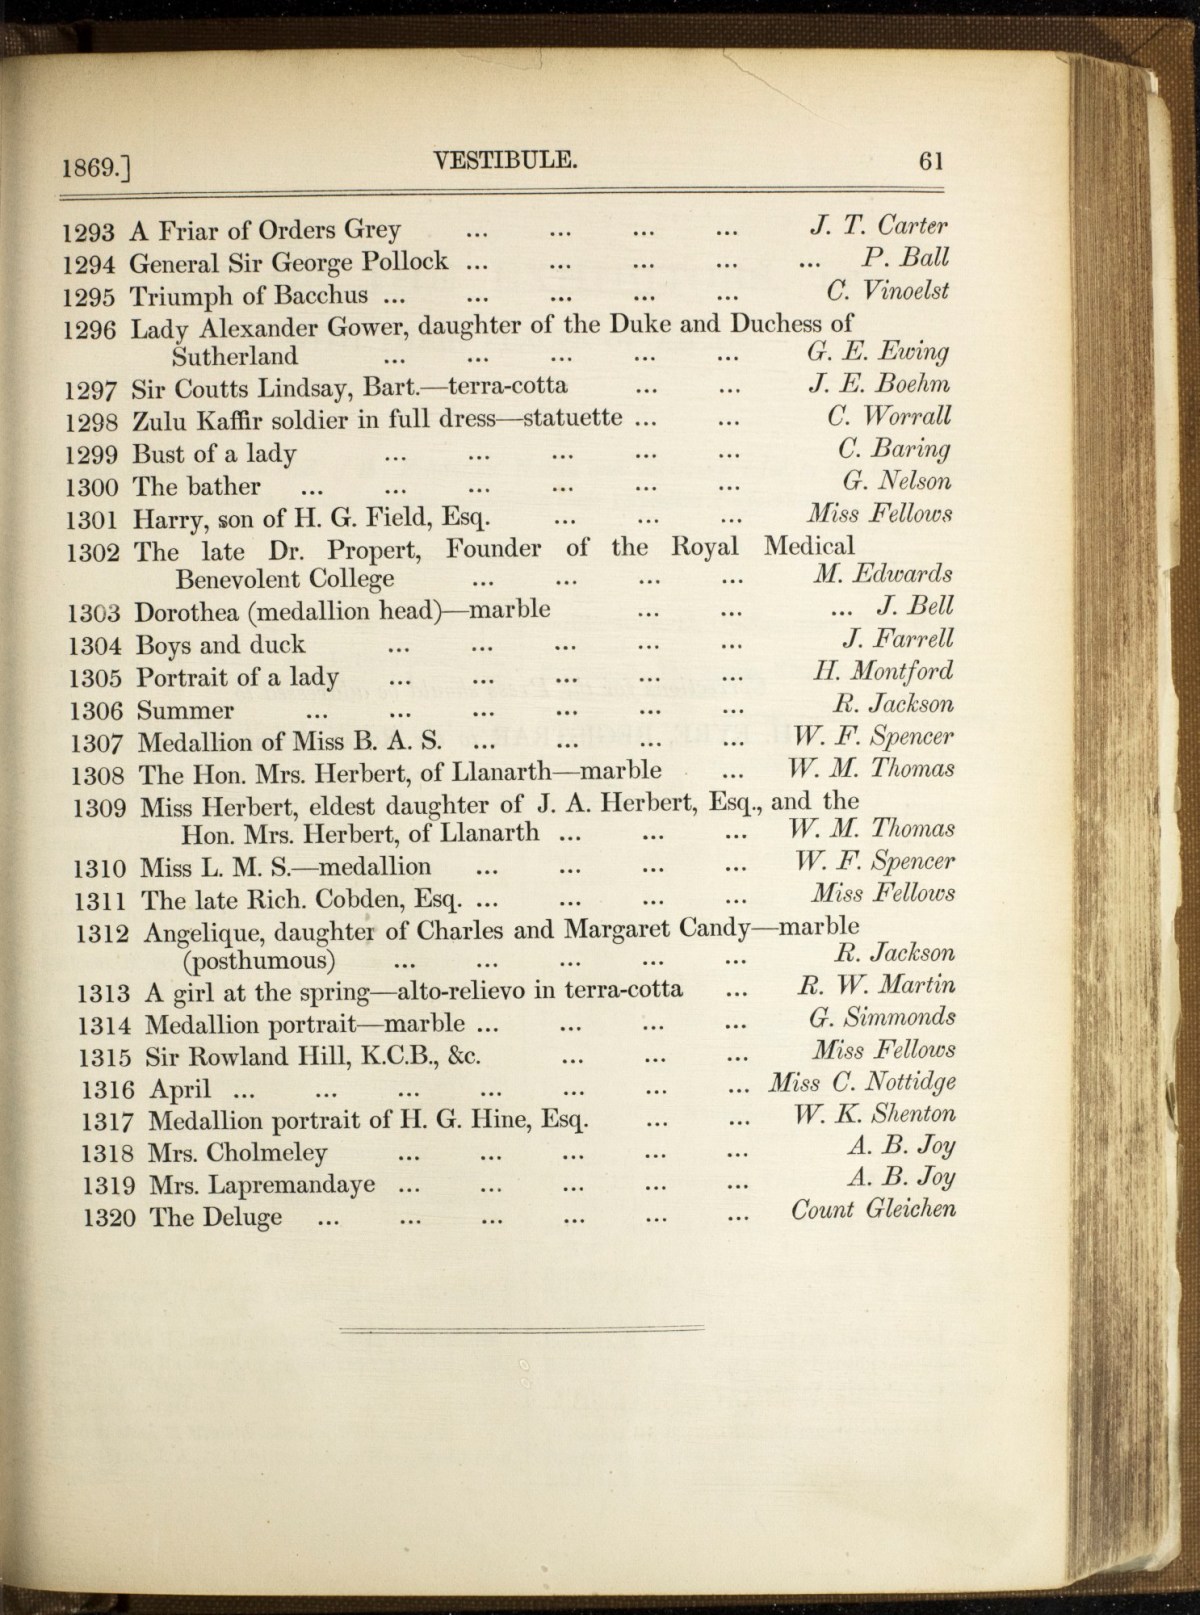 1869.] VESTIBULE. 61
1293 A Friar of Orders Grey ... ... ... ... J. T. Carter
1294 General Sir George Pollock ... ... ... ... ... P. Ball
1295 Triumph of Bacchus ... ... ... ... ... C. Vinoelst
1296 Lady Alexander Gower, daughter of the Duke and Duchess of
Sutherland ... ... ... ... ... G. E. Ewing
1297 Sir Coutts Lindsay, Bart.—terra-cotta ... ... J. E. Boehm
1298 Zulu Kaffir soldier in full dress—statuette ... ... C. Worrall
1299 Bust of a lady ... ... ... ... ... C. Baring
1300 The bather ... ... ... ... ... ... G. Nelson
1301 Harry, son of H. G. Field, Esq. ... ... ... Miss Fellows
1302 The late Dr. Propert, Founder of the Royal Medical
Benevolent College ... ... ... ... M. Edwards
1303 Dorothea (medallion head)—marble ... ... ... J. Bell
1304 Boys and duck ... ... ... ... ... J. Farrell
1305 Portrait of a lady ... ... ... ... ... H. Montford
1306 Summer ... ... ... ... ... ... R. Jackson
1307 Medallion of Miss B. A. S. ... ... ... ... W. F. Spencer
1308 The Hon. Mrs. Herbert, of Llanarth—marble ... W. M. Thomas
1309 Miss Herbert, eldest daughter of J. A. Herbert, Esq., and the
Hon. Mrs. Herbert, of Llanarth ... ... ... W. M. Thomas
1310 Miss L. M. S.—medallion ... ... ... ... W. F. Spencer
1311 The late Rich. Cobden, Esq. ... ... ... ... Miss Fellows
1312 Angelique, daughter of Charles and Margaret Candy—marble
(posthumous) ... ... ... ... ... R. Jackson
1313 A girl at the spring—alto-relievo in terra-cotta ... R. W. Martin
1314 Medallion portrait—marble ... ... ... ... G. Simmonds
1315 Sir Rowland Hill, K.C.B., &c. ... ... ... Miss Fellows
1316 April ... ... ... ... ... ... ... Miss C. Nottidge
1317 Medallion portrait of H. G. Hine, Esq. ... ... W. K. Shenton
1318 Mrs. Cholmeley ... ... ... ... ... A. B. Joy
1319 Mrs. Lapremandaye ... ... ... ... ... A. B. Joy
1320 The Deluge ... ... ... ... ... ... Count Gleichen